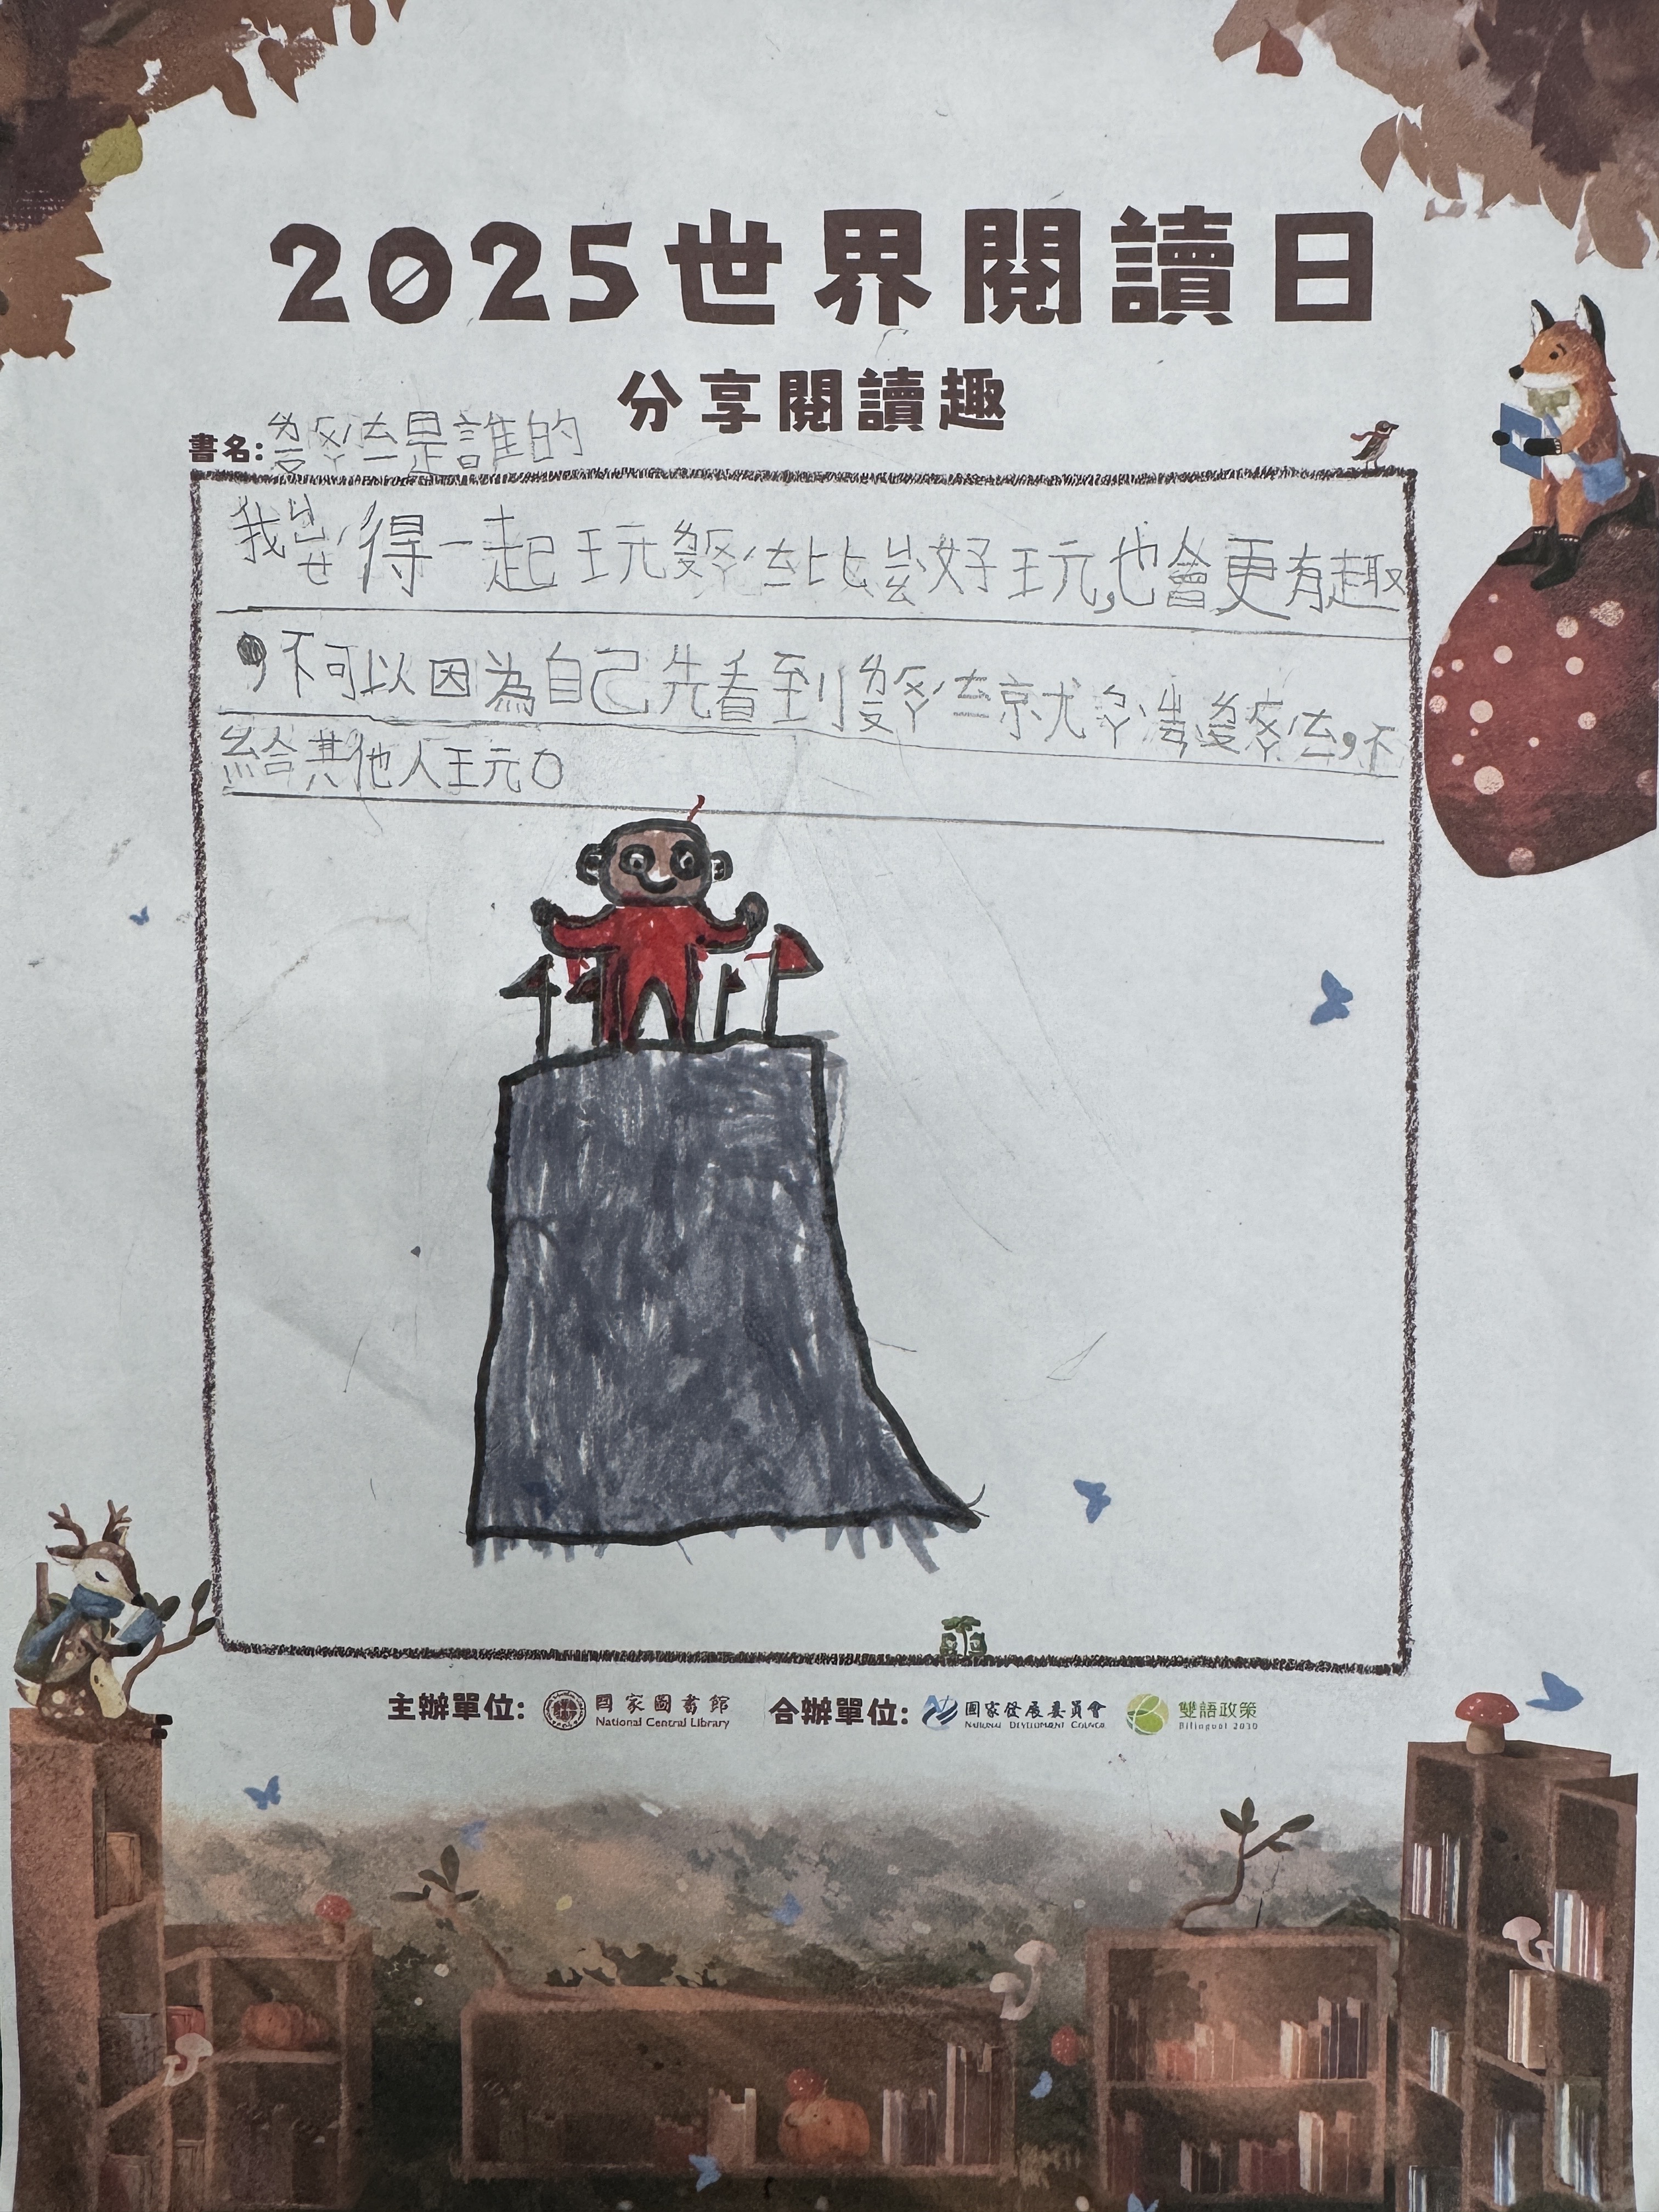 2025世界閱讀日
分享閱讀趣
書名:是誰的
我得一起玩比好玩,也會更有趣
,不可以因為自己先看到就,不
給其他人玩。
主辦單位: 國家圖書館 National Central Library 合辦單位: 國家發展委員會 NATIONAL DEVELOPMENT COUNCIL 雙語政策 Bilingual 2030